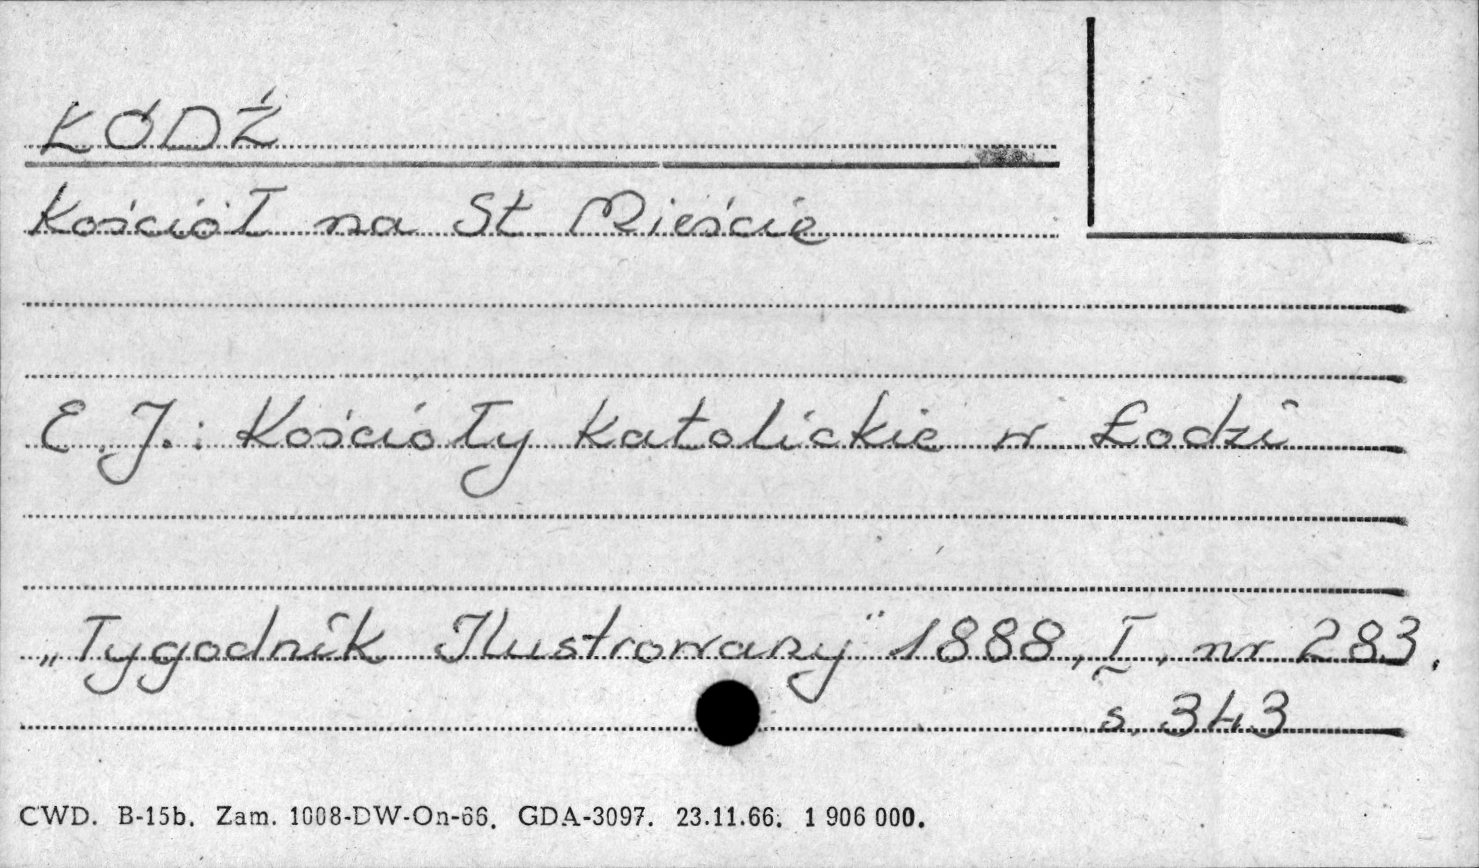 ŁÓDŹ
Kościół na St Mieście
E.J.: Kościoły katolickie w Łodzi
„Tygodnik Ilustrowany" 1888, I, nr 283,
s. 343
CWD. B-15b. Zam. 1008-DW-On-66. GDA-3097. 23.11.66. 1 906 000.